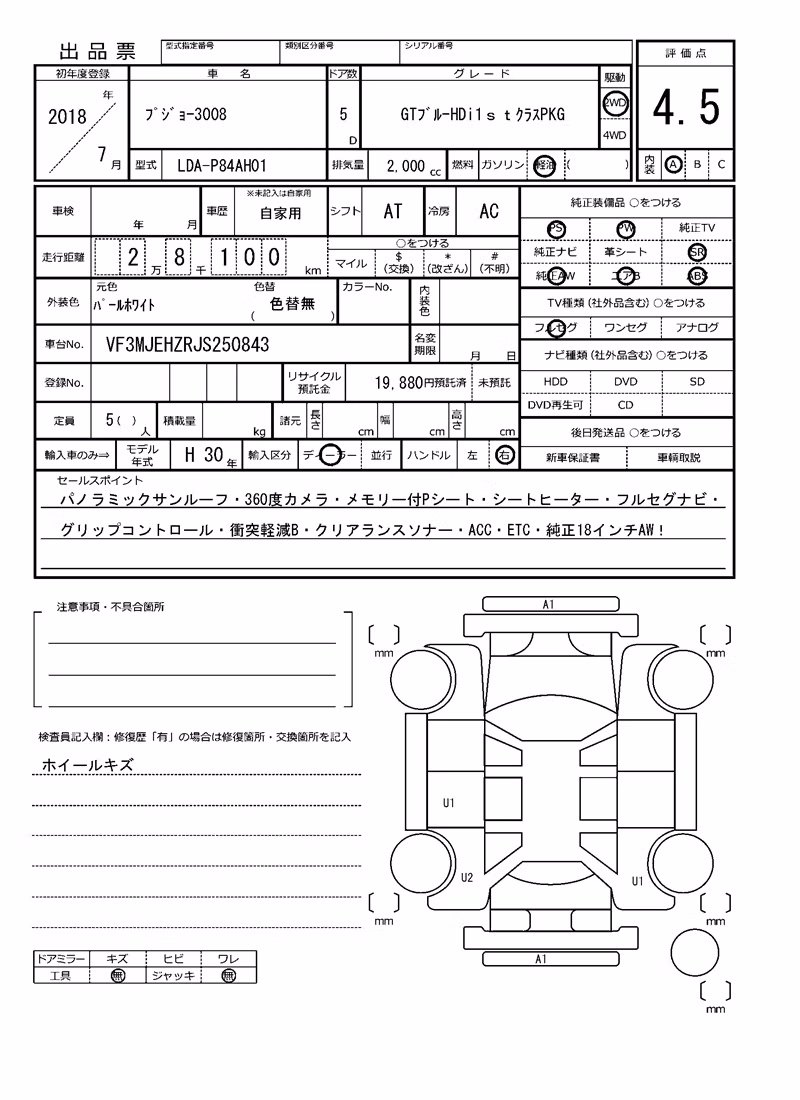 出品票
型式指定番号 類別区分番号 シリアル番号
評価点
4.5
内装 A B C
初年度登録 車名 ドア数 グレード 駆動
2018 年 7 月
プジョー3008 5 D GTブルーHDi1stクラスPKG 2WD 4WD
型式 LDA-P84AH01 排気量 2,000 cc 燃料 ガソリン 軽油 ( )
車検 年 月 車歴 ※未記入は自家用 自家用 シフト AT 冷房 AC
走行距離 2 万 8 千 1 0 0 km
○をつける
マイル $(交換) *(改ざん) #(不明)
外装色 元色 パールホワイト 色替 色替無 ( ) カラーNo. 内装色
車台No. VF3MJEHZRJS250843 名変期限 月 日
登録No. リサイクル預託金 19,880円預託済 未預託
定員 5( )人 積載量 kg 諸元 長さ cm 幅 cm 高さ cm
輸入車のみ⇒ モデル年式 H 30 年 輸入区分 ディーラー 並行 ハンドル 左 右
純正装備品 ○をつける
PS PW 純正TV
純正ナビ 革シート SR
純正AW エアB ABS
TV種類(社外品含む)○をつける
フルセグ ワンセグ アナログ
ナビ種類(社外品含む)○をつける
HDD DVD SD
DVD再生可 CD
後日発送品 ○をつける
新車保証書 車輌取説
セールスポイント
パノラミックサンルーフ・360度カメラ・メモリー付Pシート・シートヒーター・フルセグナビ・
グリップコントロール・衝突軽減B・クリアランスソナー・ACC・ETC・純正18インチAW!
注意事項・不具合箇所
検査員記入欄:修復歴「有」の場合は修復箇所・交換箇所を記入
ホイールキズ
ドアミラー キズ ヒビ ワレ
工具 無 ジャッキ 無
A1
mm mm
U1
U2 U1
mm mm
A1
mm